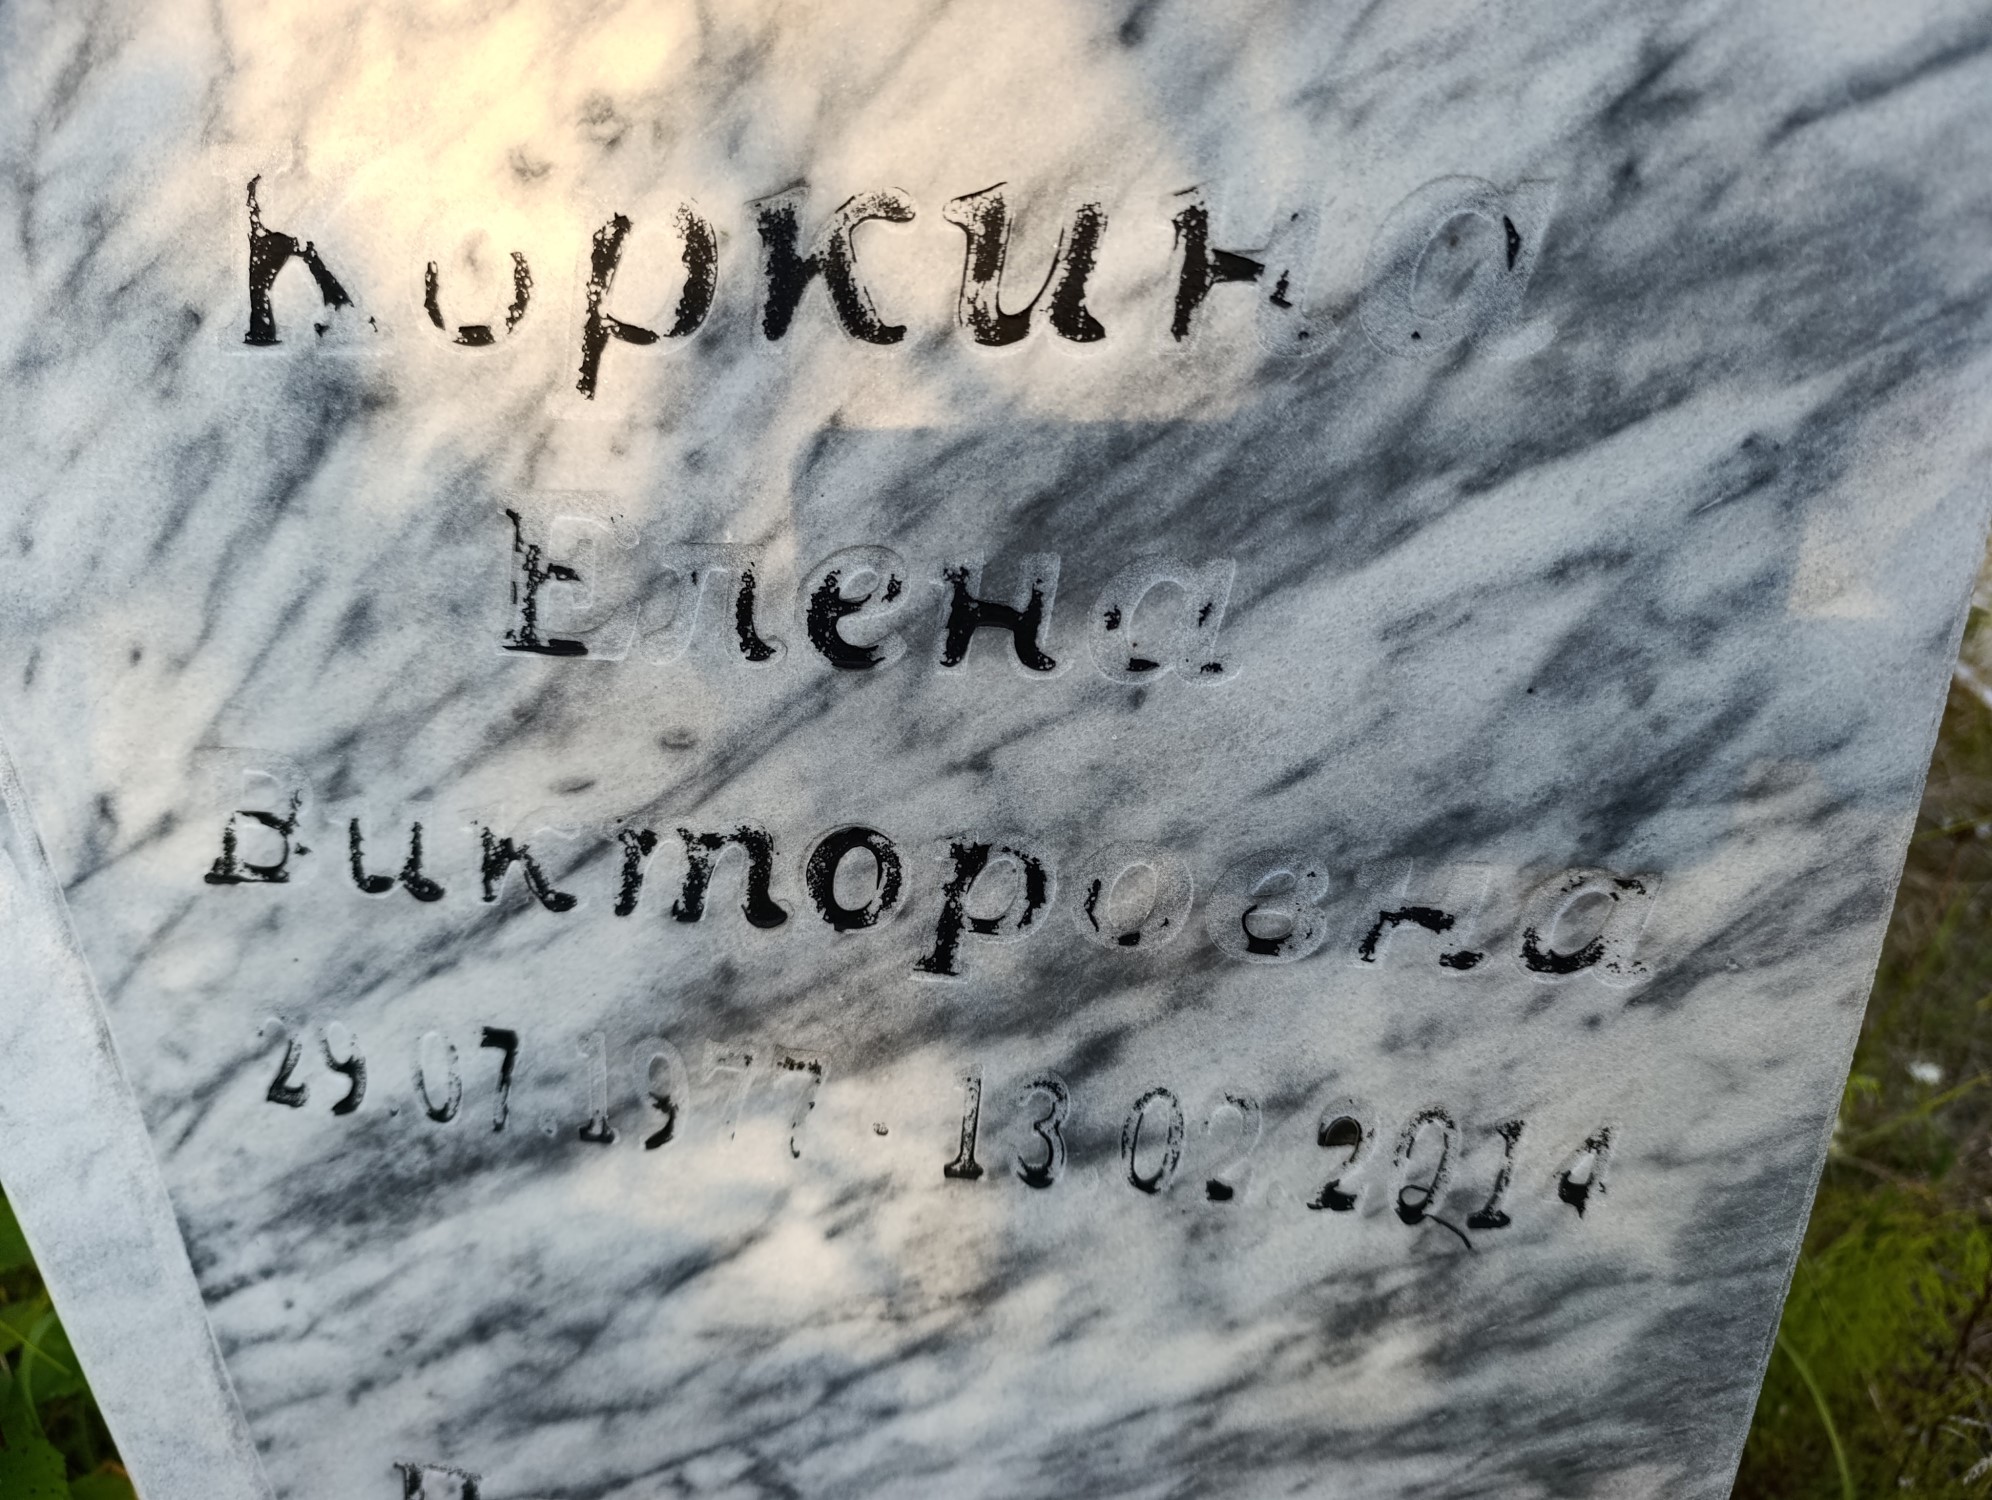 Коркина
Елена
Викторовна
29.07.1977 - 13.02.2014